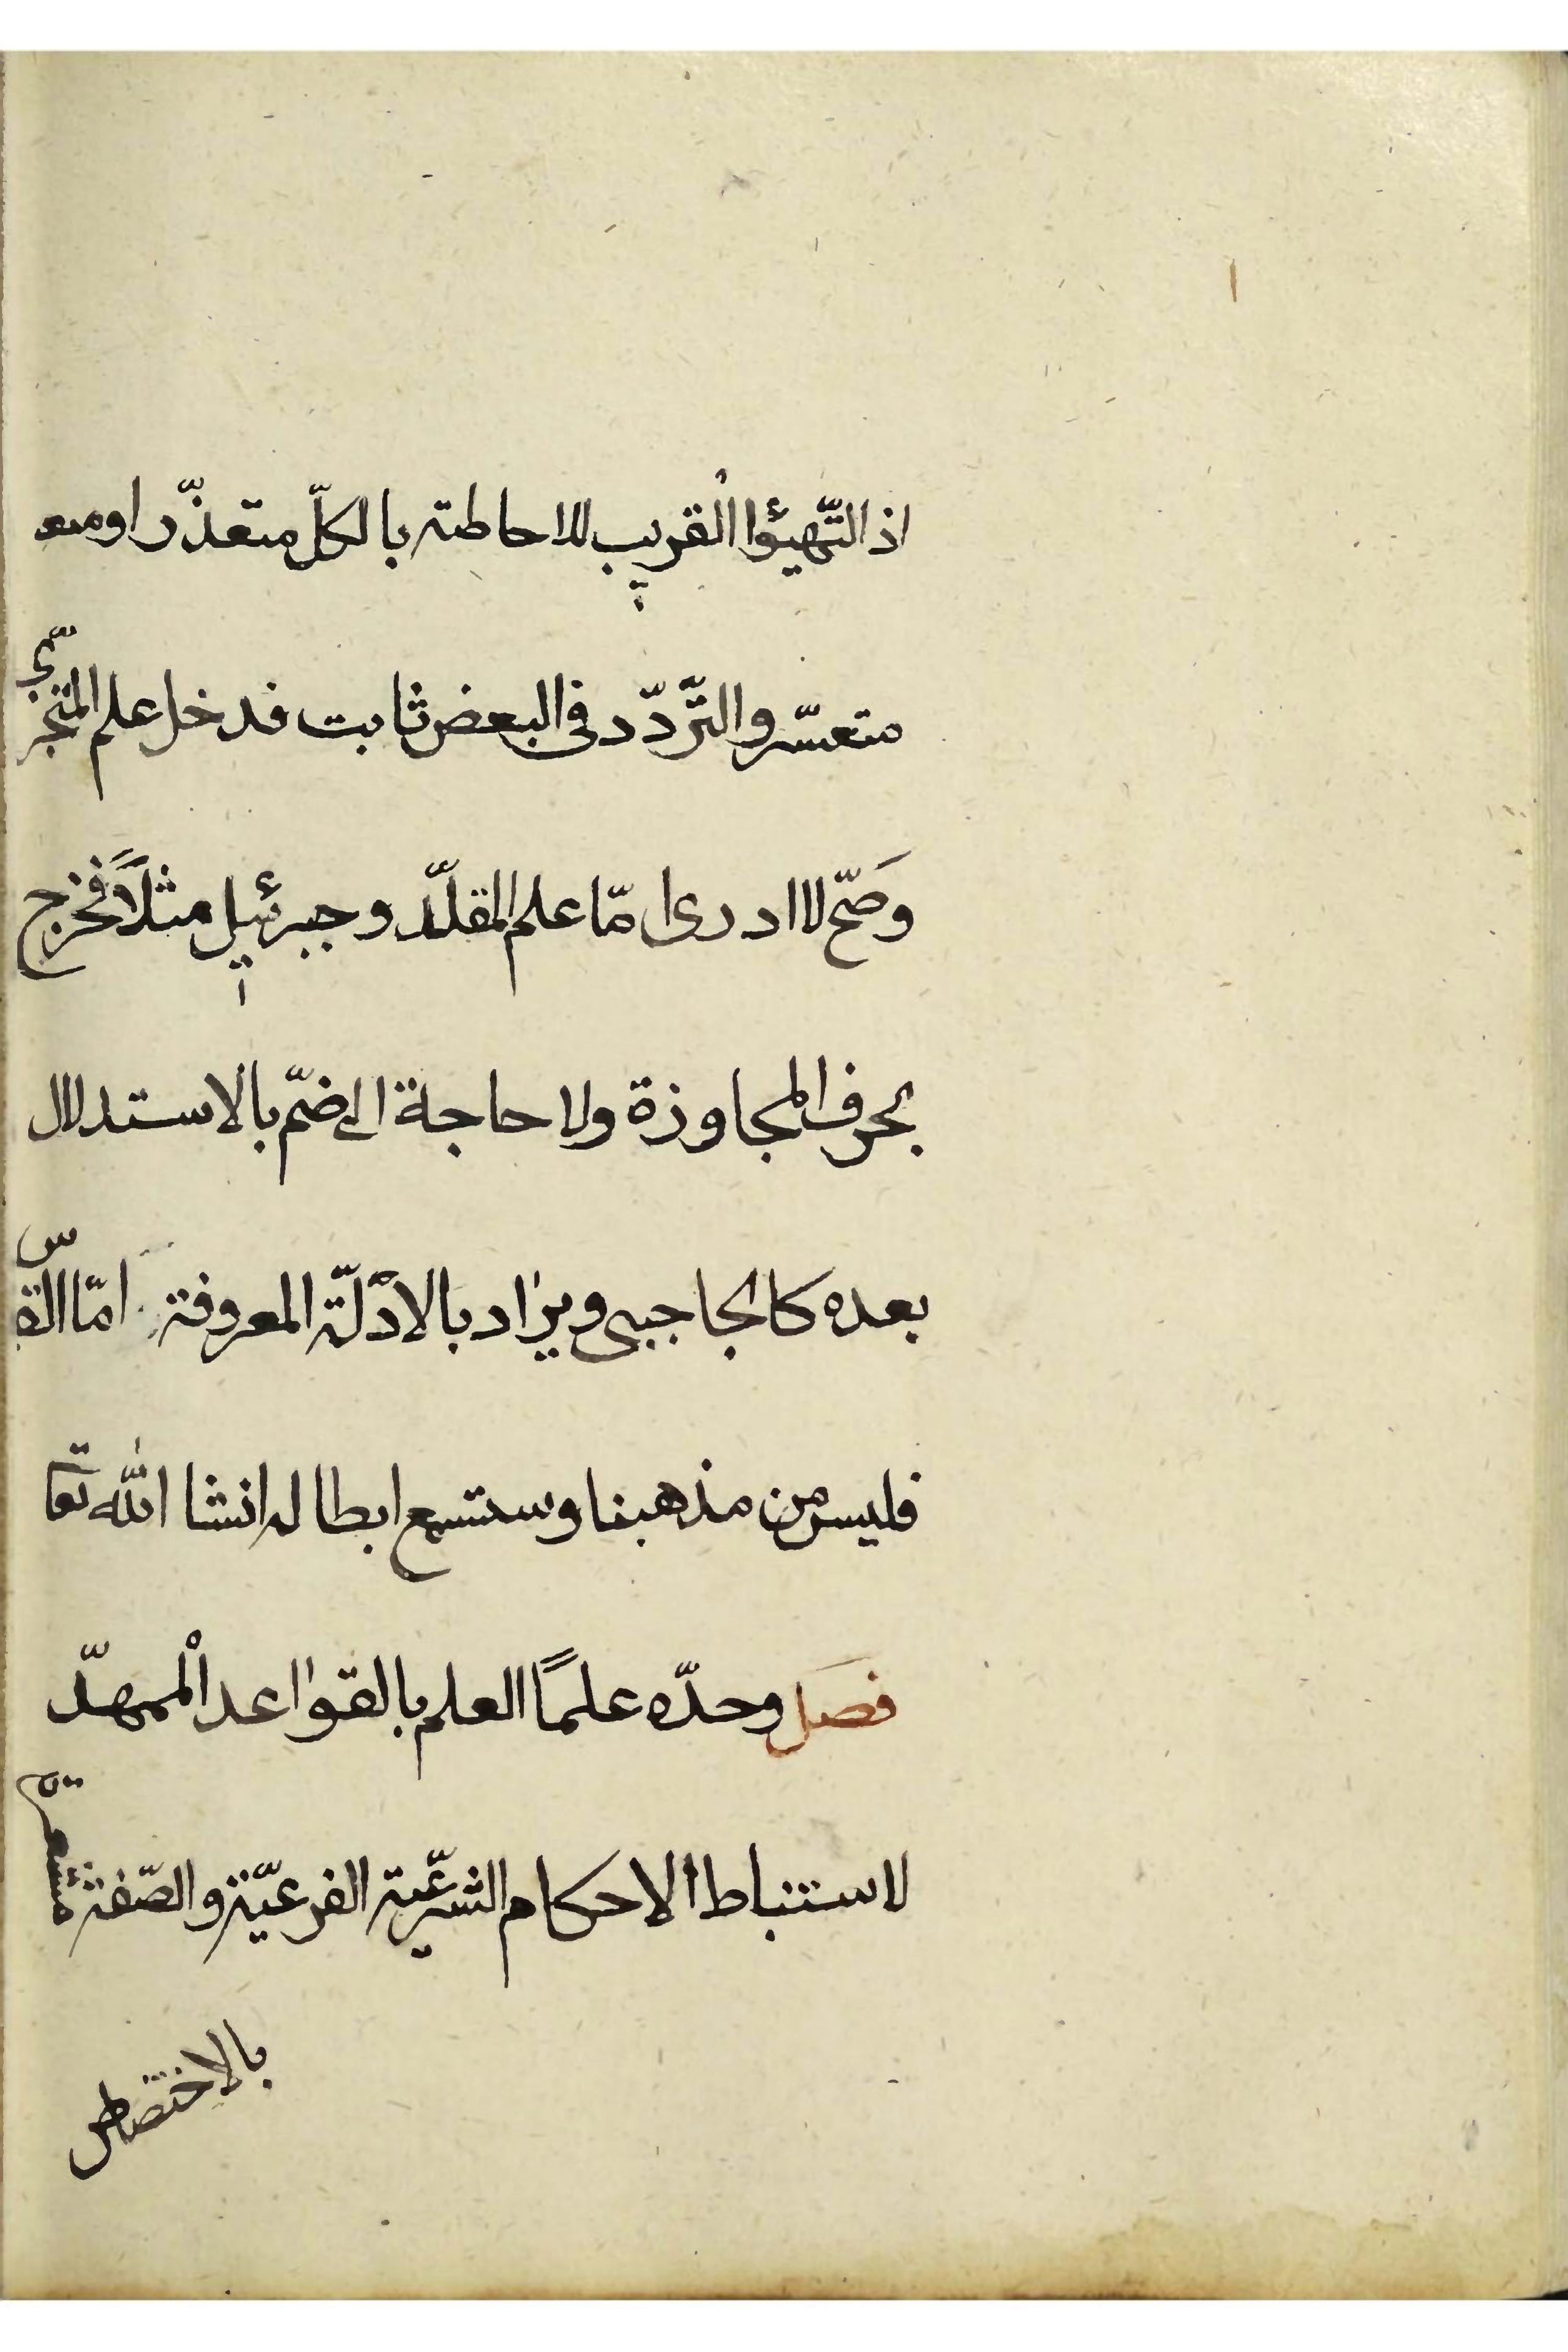 اذ التّهيؤا القريب للاحاطته بالكلّ متعذّر او متعـ
متعسّر والتّردّد فى البعض ثابت فدخل علم المتجزّى
وَصَحّ لا ادرى امّا علم المقلّد وجبرئيل مثلاً فخرج
بحرف المجاوزة ولا حاجة الى ضمّ بالاستدلال
بعده كالحاجبى ويراد بالادلّة المعروفة امّا القس
فليس من مذهبنا وستسمع ابطاله انشا الله تعا
فصل وحدّه علمًا العلم بالقواعد الممهدّ
لاستنباط الاحكام الشرعّية الفرعيّة والصّفة مشعرة
بالاختصاص